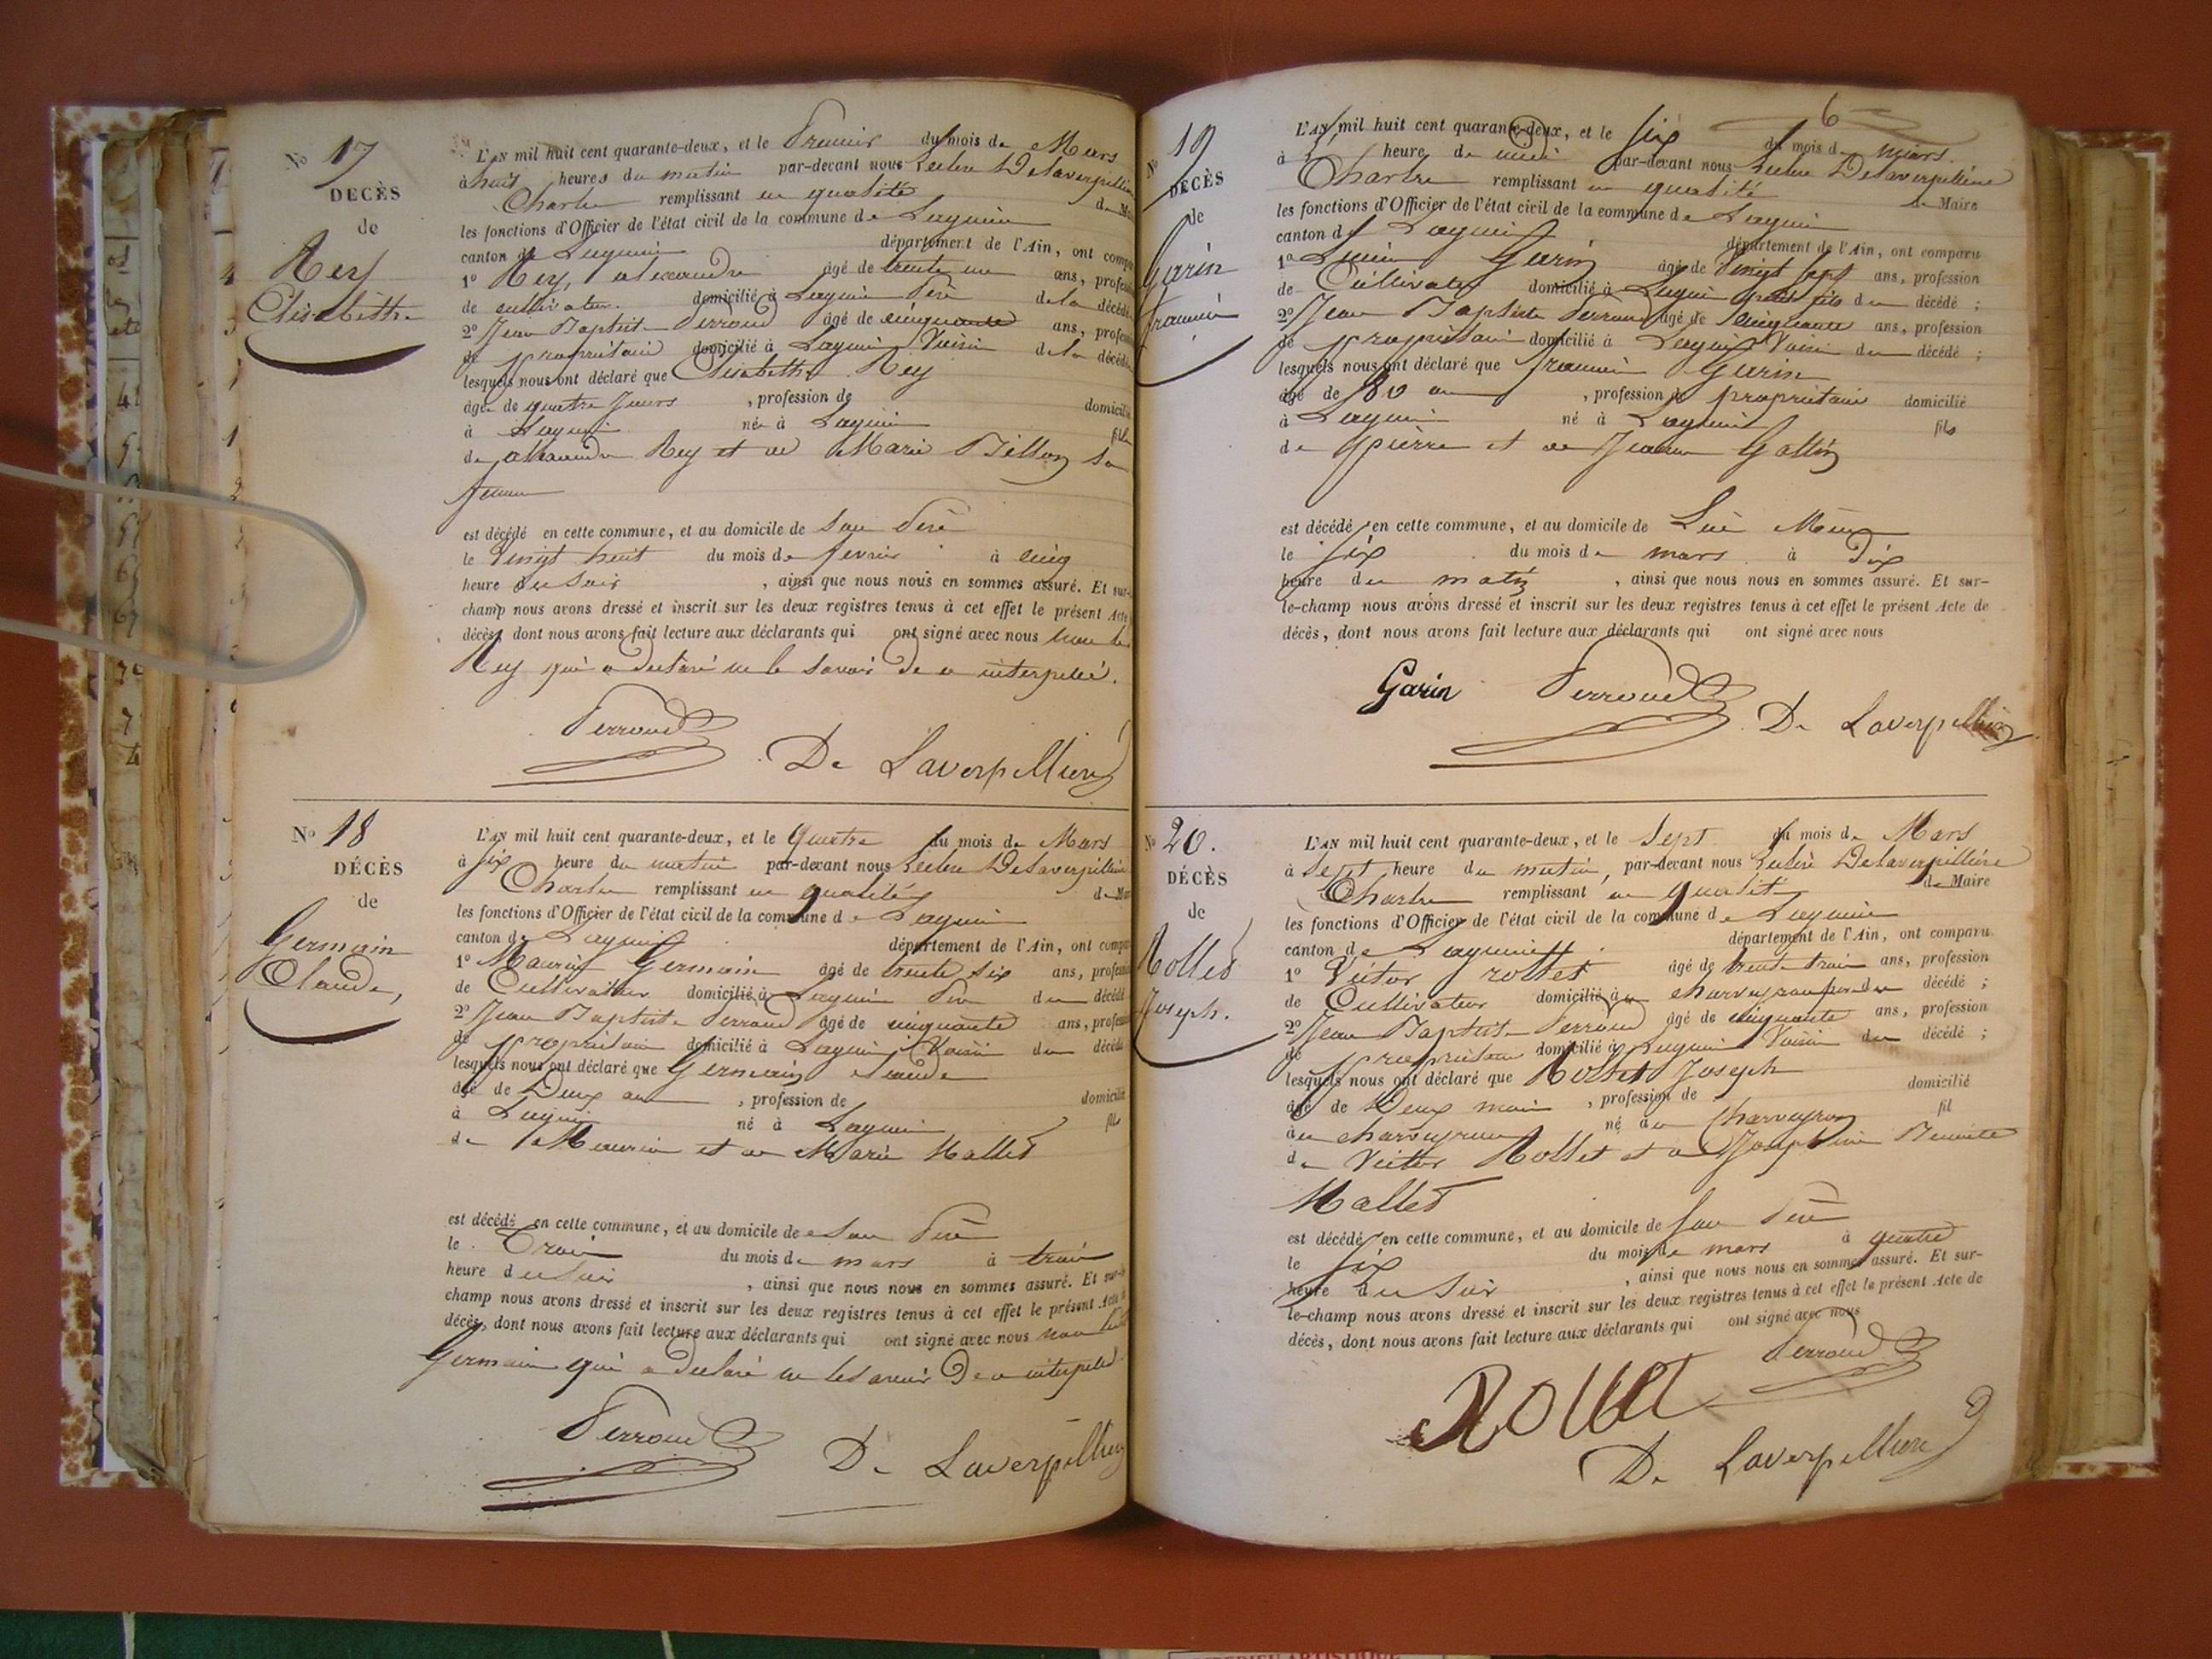 Nº 17
DECÈS
de
Rey
Elisabeth
L'AN mil huit cent quarante-deux, et le Premier du mois de Mars
à huit heures du matin par-devant nous Leclerc Delaverpillière
Charles remplissant en qualité de
les fonctions d'Officier de l'état civil de la commune de Lagnieu
canton de Lagnieu département de l'Ain, ont
1º Rey, alexandre âgé de trente un ans,
de cultivateur domicilié à Lagnieu Père de la
2º Jean Baptiste Perroud âgé de cinquante ans,
de propriétaire domicilié à Lagnieu Voisin de la
lesquels nous ont déclaré que Elisabeth Rey
âgée de quatre Jours , profession de
à Lagnieu née à Lagnieu
de alexandre Rey et de Marie Billon sa
femme
est décédé en cette commune, et au domicile de son Père
le Vingt huit du mois de fevrier à cinq
heure du soir , ainsi que nous nous en sommes assuré. Et
champ nous avons dressé et inscrit sur les deux registres tenus à cet effet le présent Acte
décès, dont nous avons fait lecture aux déclarants qui ont signé avec nous non le
Rey qui a declaré ne le savoir De ce interpellé.
Perroud
De Laverpilliere
Nº 18
DÉCÈS
de
Germain
Claude,
L'AN mil huit cent quarante-deux, et le Quatre du mois de Mars
à six heure du matin par-devant nous Leclerc Delaverpillière
Charles remplissant en qualité
les fonctions d'Officier de l'état civil de la commune de Lagnieu
canton de Lagnieu département de l'Ain, ont
1º Maurice Germain âgé de trente six ans,
de Cultivateur domicilié à Lagnieu Père du décédé
2º Jean Baptiste Perroud âgé de cinquante ans,
de propriétaire domicilié à Lagnieu Voisin du
lesquels nous ont déclaré que Germain Claude
âgé de Deux ans , profession de
à Lagnieu né à Lagnieu fils
de Maurice et de Marie Mallet
est décédé en cette commune, et au domicile de son Père
le Trois du mois de mars à trois
heure du soir , ainsi que nous nous en sommes assuré. Et
champ nous avons dressé et inscrit sur les deux registres tenus à cet effet le présent Acte
décès, dont nous avons fait lecture aux déclarants qui ont signé avec nous non
Germain qui a declaré ne le savoir De ce interpellé
Perroud
De Laverpilliere
6
Nº 19
DECÈS
de
Garin
L'AN mil huit cent quarante-deux, et le six du mois de mars.
à heure de midi par-devant nous Leclerc Delaverpillière
Charles remplissant en qualité de Maire
les fonctions d'Officier de l'état civil de la commune de Lagnieu
canton de Lagnieu département de l'Ain, ont comparu
1º Garin âgé de Vingt sept ans, profession
de Cultivateur domicilié à Lagnieu petit fils du décédé ;
2º Jean Baptiste Perroud âgé de cinquante ans, profession
de propriétaire domicilié à Lagnieu Voisin du décédé ;
lesquels nous ont déclaré que Garin
âgé de 80 ans , profession de propriétaire domicilié
à Lagnieu né à Lagnieu fils
de pierre et de Jeanne Gallin
est décédé en cette commune, et au domicile de Lui Même
le six du mois de mars à Dix
heure du matin , ainsi que nous nous en sommes assuré. Et sur-
le-champ nous avons dressé et inscrit sur les deux registres tenus à cet effet le présent Acte de
décès, dont nous avons fait lecture aux déclarants qui ont signé avec nous
Garin Perroud De Laverpilliere
Nº 20.
DÉCÈS
de
Rollet
Joseph.
L'AN mil huit cent quarante-deux, et le Sept du mois de Mars
à Sept heure du matin, par-devant nous Leclerc Delaverpillière
Charles remplissant en qualité de Maire
les fonctions d'Officier de l'état civil de la commune de Lagnieu
canton de Lagnieu département de l'Ain, ont comparu
1º Victor rollet âgé de trente trois ans, profession
de Cultivateur domicilié à charveyron père du décédé ;
2º Jean Baptiste Perroud âgé de cinquante ans, profession
de propriétaire domicilié à Lagnieu Voisin du décédé ;
lesquels nous ont déclaré que Rollet Joseph
âgé de Deux mois , profession de domicilié
au charveyron né au Charveyron fil
de Victor Rollet et de Josephine
Mallet
est décédé en cette commune, et au domicile de son Père
le six du mois de mars à quatre
heure du soir , ainsi que nous nous en sommes assuré. Et sur-
le-champ nous avons dressé et inscrit sur les deux registres tenus à cet effet le présent Acte de
décès, dont nous avons fait lecture aux déclarants qui ont signé avec nous
Perroud
Rollet
De Laverpilliere